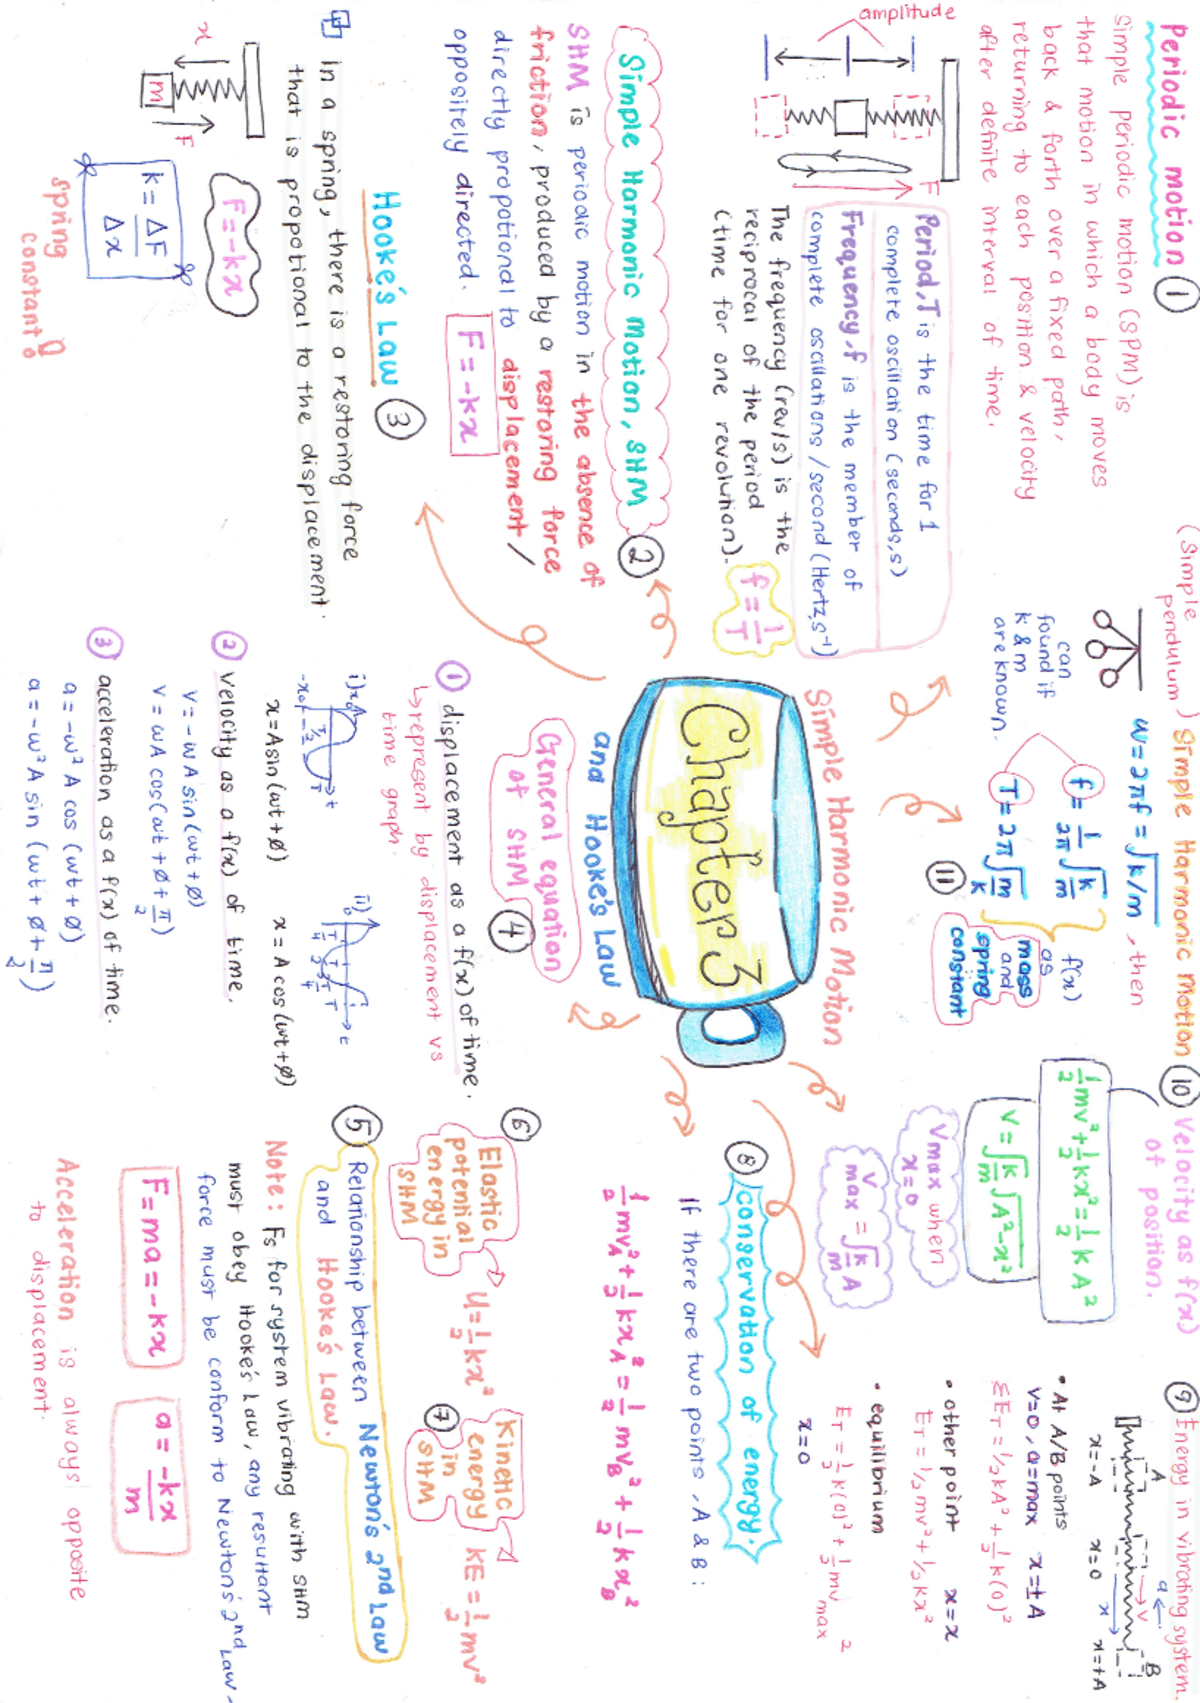 Periodic motion ①
Simple periodic motion (SPM) is
that motion in which a body moves
back & forth over a fixed path,
returning to each position & velocity
after definite interval of time.
amplitude
F
Period, T is the time for 1
complete oscillation (seconds, s)
Frequency, f is the member of
complete oscillations / second (Hertz, s⁻¹)
The frequency (rev/s) is the
reciprocal of the period
(time for one revolution).
f = 1/T
Simple Harmonic Motion, SHM ②
SHM is periodic motion in the absence of
friction, produced by a restoring force
directly propotional to displacement/
oppositely directed.
F = -kx
Hooke's Law ③
In a spring, there is a restoring force
that is propotional to the displacement.
x
m
F
F = -kx
k = ΔF/Δx
spring
constant!
Chapter 3
Simple Harmonic Motion
and Hooke's Law
General equation
of SHM ④
① displacement as a f(x) of time.
↳ represent by displacement vs
time graph.
i)
x₀
-x₀
T/2
T
t
ii)
t
x = A sin (ωt + ø)
x = A cos (ωt + ø)
② velocity as a f(x) of time.
v = -ωA sin (ωt + ø)
v = ωA cos (ωt + ø + π/2)
③ acceleration as a f(x) of time.
a = -ω² A cos (ωt + ø)
a = -ω² A sin (ωt + ø + π/2)
⑤ Relationship between Newton's 2nd Law
and Hooke's Law.
Note: Fs for system vibrating with SHM
must obey Hooke's Law, any resultant
force must be conform to Newton's 2nd Law.
F = ma = -kx
a = -kx/m
Acceleration is always opposite
to displacement.
⑥ Elastic
potential
energy in
SHM
U = 1/2 kx²
⑦ Kinetic
energy
in
SHM
KE = 1/2 mv²
⑧ conservation of energy.
If there are two points, A & B:
1/2 mv_A² + 1/2 kx_A² = 1/2 mv_B² + 1/2 kx_B²
⑨ Energy in vibrating system.
A
B
a
v
x
x=-A
x=0
x=+A
• At A/B points
v=0, a=max x=±A
ΣE_T = 1/2 kA² + 1/2 k(0)²
• other point x=x
E_T = 1/2 mv² + 1/2 kx²
• equilibrium
E_T = 1/2 k(0)² + 1/2 mv² max
x=0
⑩ Velocity as f(x)
of position.
1/2 mv² + 1/2 kx² = 1/2 kA²
v = √k/m √A²-x²
Vmax when
x=0
v max = √k/m A
(Simple
pendulum) Simple Harmonic Motion
ω = 2πf = √k/m, then
can
found if
k & m
are known.
f = 1/2π √k/m
T = 2π √m/k
⑪
f(x)
as
mass
and
spring
constant